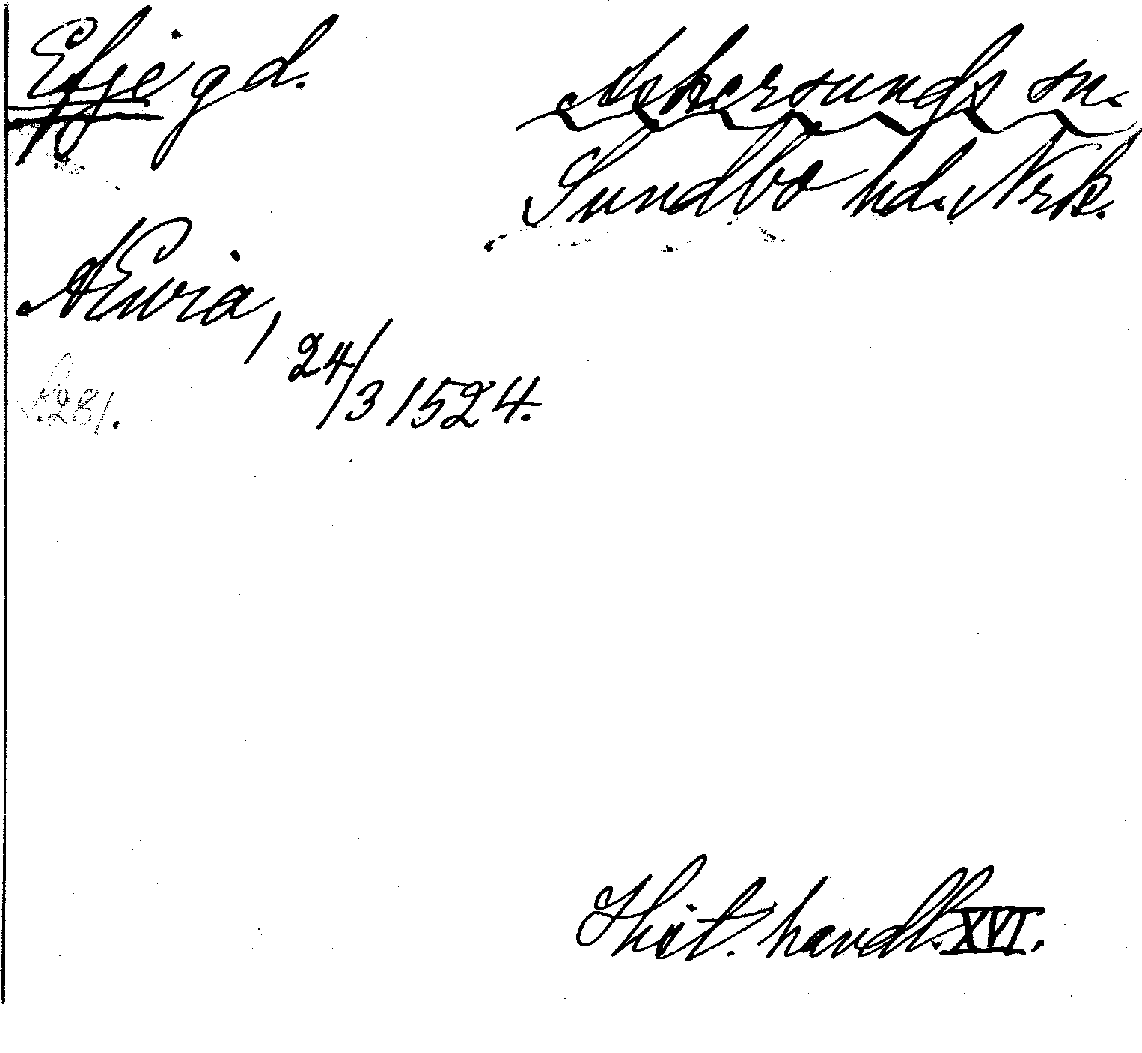 Efje gd.
Askersunds sn.
Sundbo hd. Nrk.
Æwia, 24/3 1524.
s. 281.
Hist. handl. XVI.